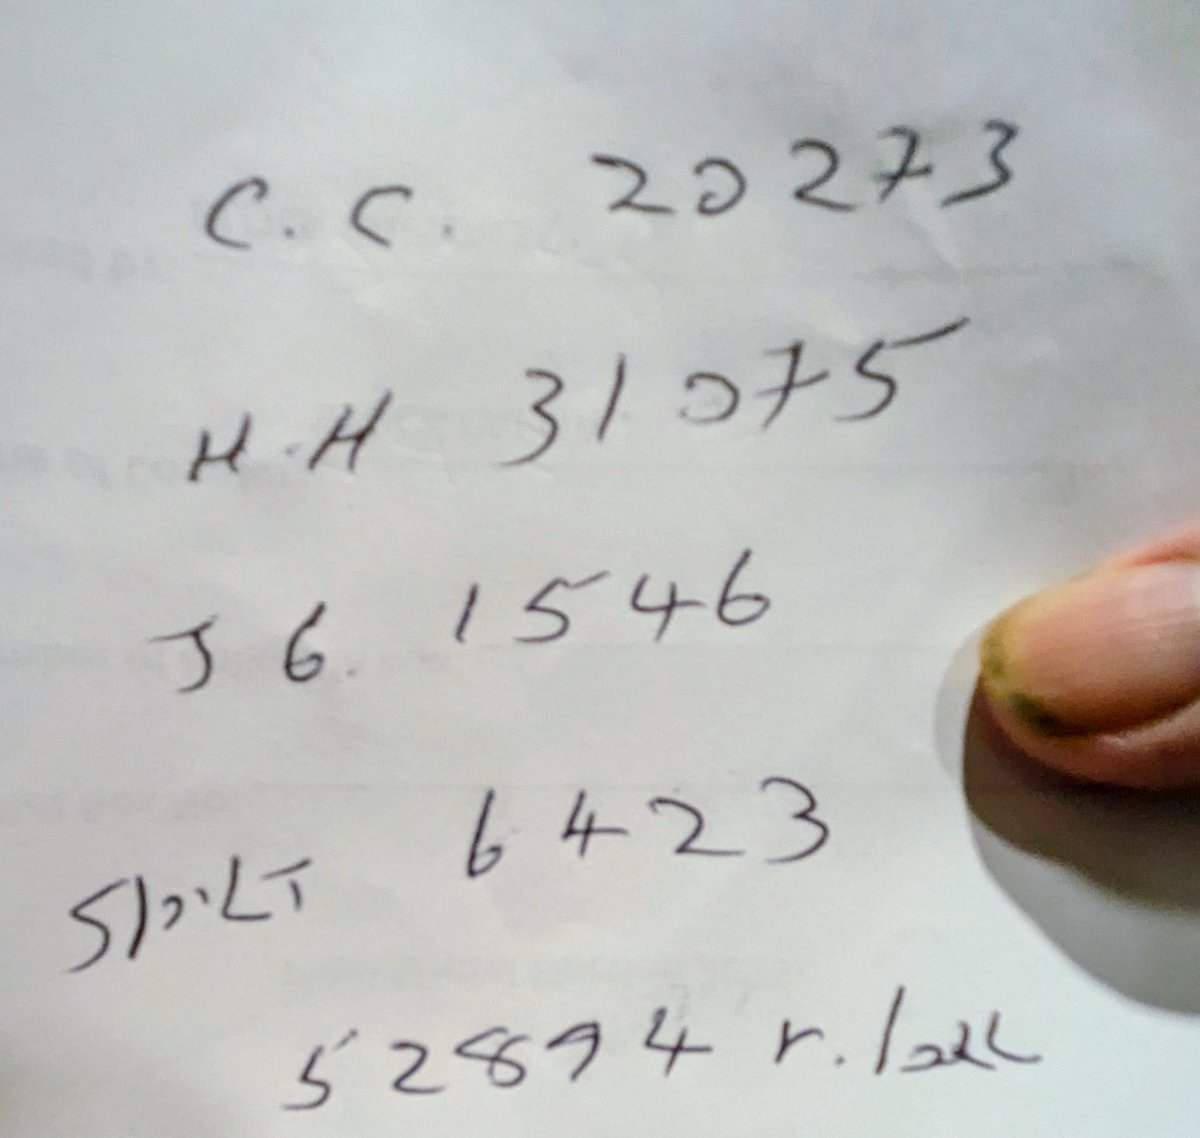 C.C. 20273
H.H 31075
J G. 1546
SpiLT 6423
52894 r.